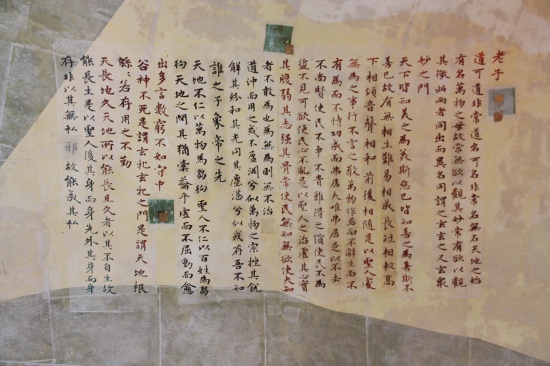 老子
道可道非常道名可名非常名無名天地之始
有名萬物之母故常無欲以觀其妙常有欲以觀
其徼此兩者同出而異名同謂之玄玄之又玄衆
妙之門
天下皆知美之為美斯惡已皆知善之為善斯不
善已故有無相生難易相成長短相較高
下相傾音聲相和前後相隨是以聖人處
無為之事行不言之教萬物作焉而不辭生而不
有為而不恃功成而弗居夫唯弗居是以不去
不尚賢使民不爭不貴難得之貨使民不為
盜不見可欲使民心不亂是以聖人之治虛其心實
其腹弱其志强其骨常使民無知無欲使夫知
者不敢為也為無為則無不治
道沖而用之或不盈淵兮似萬物之宗挫其銳
解其紛和其光同其塵湛兮似或存吾不知
誰之子象帝之先
天地不仁以萬物為芻狗聖人不仁以百姓為芻
狗天地之間其猶橐籥乎虛而不屈動而愈
出多言數窮不如守中
谷神不死是謂玄牝玄牝之門是謂天地根
綿綿若存用之不勤
天長地久天地所以能長且久者以其不自生故
能長生是以聖人後其身而身先外其身而身
存非以其無私邪故能成其私